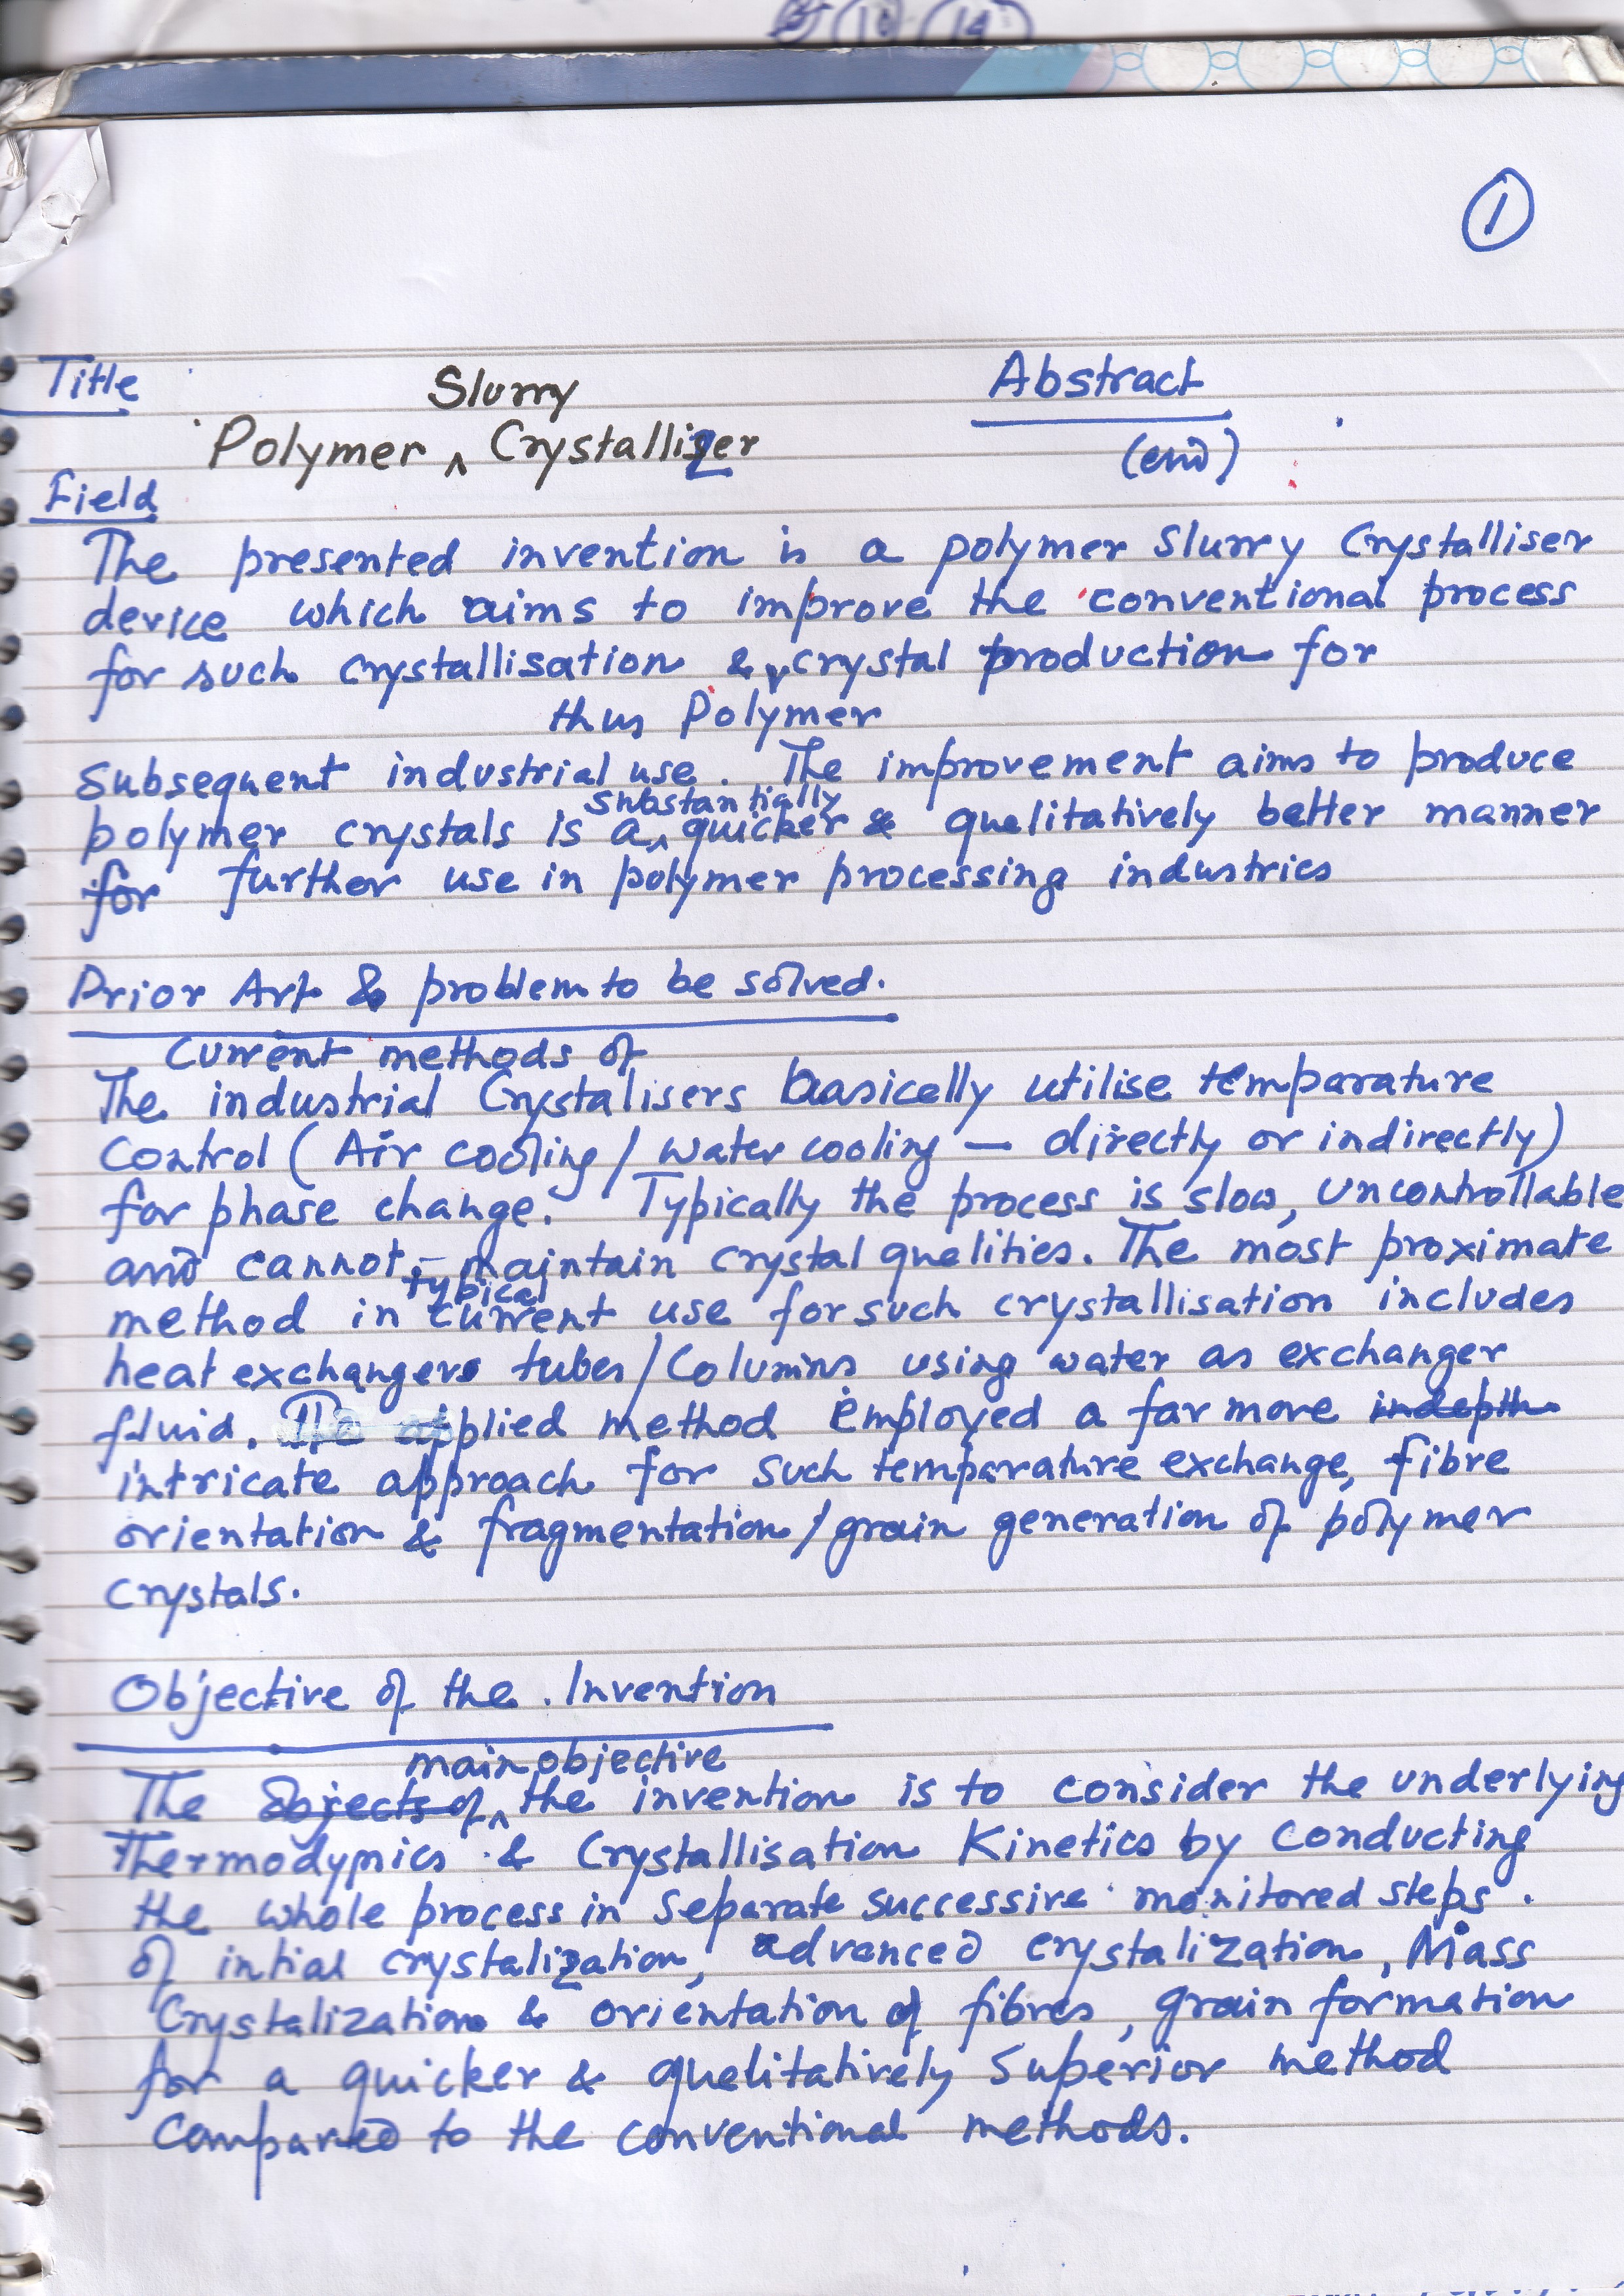 10 14
1
Title Slurry Abstract
Polymer ^ Crystallizer (end)
Field
The presented invention is a polymer Slurry Crystalliser
device which aims to improve the conventional process
for such crystallisation & crystal production for
thus Polymer
Subsequent industrial use. The improvement aims to produce
substantially
polymer crystals is a ^ quicker & qualitatively better manner
for further use in polymer processing industries
Prior Art & problem to be solved.
Current methods of
The industrial Crystalisers basically utilise temparature
Control (Air cooling / water cooling — directly or indirectly)
for phase change. Typically the process is slow, uncontrollable
and cannot maintain crystal qualities. The most proximate
typical
method in current use for such crystallisation includes
heat exchangers tubes/Columns using water as exchanger
fluid. The applied method Employed a far more indepth
intricate approach for such temparature exchange, fibre
orientation & fragmentation / grain generation of polymer
Crystals.
Objective of the Invention
main objective
The Objects of ^ the invention is to consider the underlying
Thermodynics & Crystallisation Kinetics by Conducting
the whole process in Separate successive monitored steps.
of intial crystalization, advanced crystalization, Mass
Crystalization & orientation of fibres, grain formation
for a quicker & qualitatively Superior method
Compared to the conventional methods.